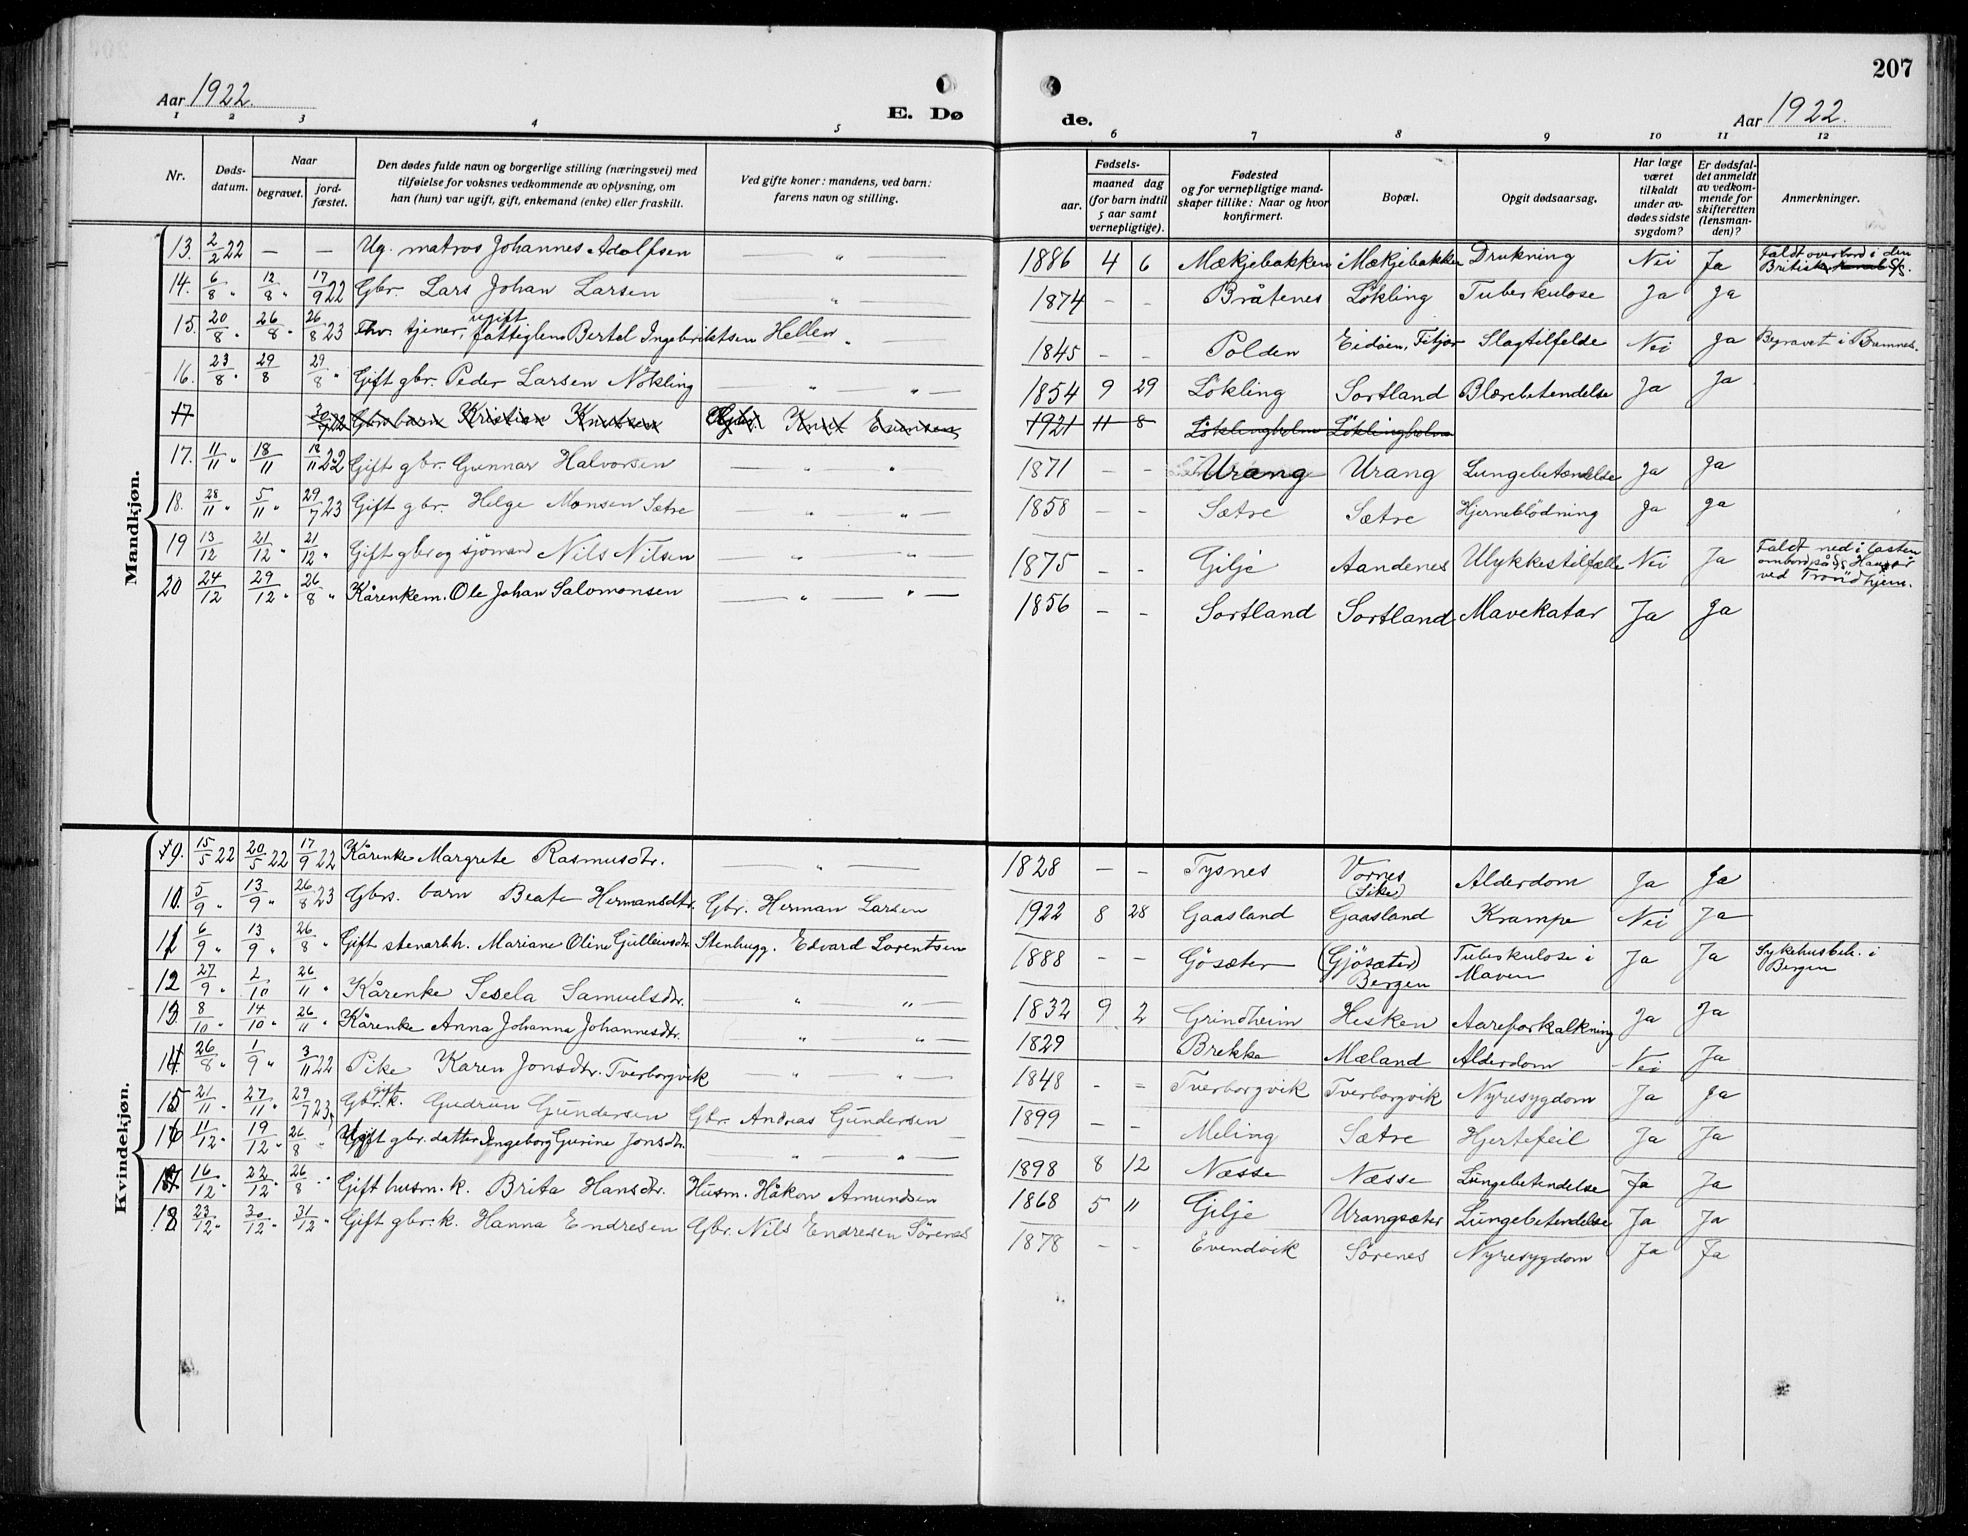 207
Aar 1922.
E. Døde.
Aar 1922.
1 2 3 4 5 6 7 8 9 10 11 12
Nr.
Døds-
datum.
Naar
begravet.
jord-
fæstet.
Den dødes fulde navn og borgerlige stilling (næringsvei) med
tilføielse for voksnes vedkommende av oplysning, om
han (hun) var ugift, gift, enkemand (enke) eller fraskilt.
Ved gifte koner: mandens, ved barn:
farens navn og stilling.
Fødsels-
aar.
maaned dag
(for barn indtil
5 aar samt
vernepligtige).
Fødested
og for vernepligtige mand-
skaper tillike: Naar og hvor
konfirmert.
Bopæl.
Opgit dødsaarsag.
Har læge
været
tilkaldt
under av-
dødes sidste
sygdom?
Er dødsfal-
det anmeldt
av vedkom-
mende for
skifteretten
(lensman-
den)?
Anmerkninger.
Mandkjøn.
13. 2/2 22 — — Ug. matros Johannes Adolfsen — " — 1886 4 6 Mækjebakken Mækjebakken Drukning Nei Ja Faldt overbord i den
Britiske Kanal
14. 6/8 " 12/8 " 17/9 22 Gbr. Lars Johan Larsen — " — 1874 — — Bråtenes Løkling Tuberkulose Ja Ja
15. 20/8 " 26/8 " 26/8 23 Fhv. tjener, ugift fattiglem Bertel Ingebriktsen Hellen " — 1845 — — Polden Eidøen, Fitjar Slagtilfelde Nei Ja Begravet i Bremnes.
16. 23/8 " 29/8 29/8 " Gift gbr. Peder Larsen Nökling — " — " — 1854 9 29 Lökling Sortland Blærebetendelse Ja Ja
17 Gbrs barn Kristian Knutsen Gbr. Knut Evensen 1921 11 8 Löklingholm Löklingholm
17. 11/11 " 18/11 18/11 22 Gift gbr. Gunnar Halvorsen — " — " 1871 — — Urang Urang Lungebetændelse Ja Ja
18. 28/11 " 5/11 " 29/7 23 Gift gbr. Helge Monsen Sætre — " — " — 1858 — — Sætre Sætre Hjerneblödning Ja Ja
19 13/12 21/12 " 21/12 " Gift gbr og sjömand Nils Nilsen — " — " 1875 — — Gilje Aandenes Ulykkestilfælle Nei Ja Faldt ned i lasten
ombord på
ved Trondhjem.
20 24/12 29/12 " 26/8 " Kårenkem. Ole Johan Salomonsen — " — " — 1856 — — Sortland Sortland Mavekatar Ja Ja
Kvindekjøn.
9. 15/5 22 20/5 22 17/9 22 Kårenke Margrete Rasmusdtr. — " — 1828 — — Tysnes Vornes
(Sike) Alderdom Ja Ja
10. 5/9 " 13/9 " 26/8 23 Gbrs. barn Beate Hermansdtr. Gbr. Herman Larsen 1922 8 28 Gaasland Gaasland Krampe Nei Ja
11 6/9 " 13/9 " 26/8 " Gift stenarbh. Mariane Oline Gulleivsdtr. Stenhugg. Edvard Lorentsen 1888 — — Gösæter (Gjösæter)
Bergen Tuberkulose i
Maven Ja Ja Sykehusbeh. i
Bergen
12 27/9 " 2/10 26/11 " Kårenke Sesela Samuelsdtr. — " — " — 1832 9 2 Grindheim Hesken Aareforkalkning Ja Ja
13. 8/10 " 14/10 " 26/11 " Kårenke Anna Johanna Johannesdtr. — " — " — 1829 Brekke Mæland Alderdom Nei Ja
14. 26/8 " 1/9 " 3/11 22 Pike Karen Jonsdtr. Tverborgvik — " — " — 1848 — — Tverborgvik Tverborgvik Nyresygdom Ja Ja
15 21/11 " 27/11 " 29/7 23 Gbr. gift k. Gudrun Gundersen Gbr. Andreas Gundersen 1899 — — Meling Sætre Hjertefeil Ja Ja
16 11/12 " 19/12 " 26/8 " Ugift gbr. datter Ingeborg Gurine Jonsdtr. — " — " — 1898 8 12 Næsse Næsse Lungebetendelse Ja Ja
17 16/12 " 22/12 " 26/8 " Gift husm. k. Brita Hansdtr. Husm. Håkon Amundsen 1868 5 11 Gilje Urangsæter Lungebetendelse Ja Ja
18 23/12 " 30/12 " 31/12 " Gift gbr. k. Hanna Endresen Gbr. Nils Endresen Sörenes 1878 — — Evendvik Sörenes Nyresygdom Ja Ja